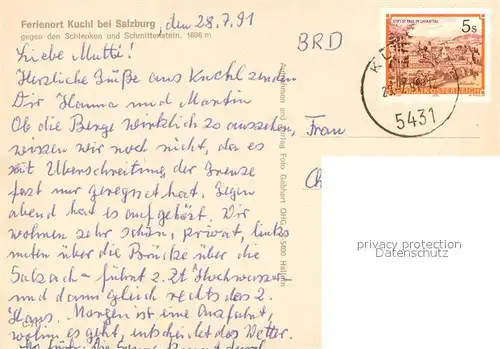 Ferienort Kuchl bei Salzburg, den 28.7.91
gegen den Schlenken und Schmittenstein. 1696 m
BRD
Liebe Mutti!
Herzliche Grüße aus Kuchl senden
Dir Hanna und Martin
Ob die Berge wirklich so aussehen,
wissen wir noch nicht, da es
seit Überschreitung der Grenze
fast nur geregnet hat. Gegen
abend hat es aufgehört. Wir
wohnen sehr schön, privat, links
unten über die Brücke über die
Salzach – führt z. Zt Hochwasser
und dann gleich rechts das 2.
Haus. Morgen ist eine Ausfahrt,
wohin es geht, entscheidet das Wetter.
Aufnahmen und Verlag Foto Gebhart OHG, A-5400 Hallein
Frau
5 s
STIFT ST. PAUL IM LAVANTTAL
REPUBLIK ÖSTERREICH
5431
privacy protection
Datenschutz